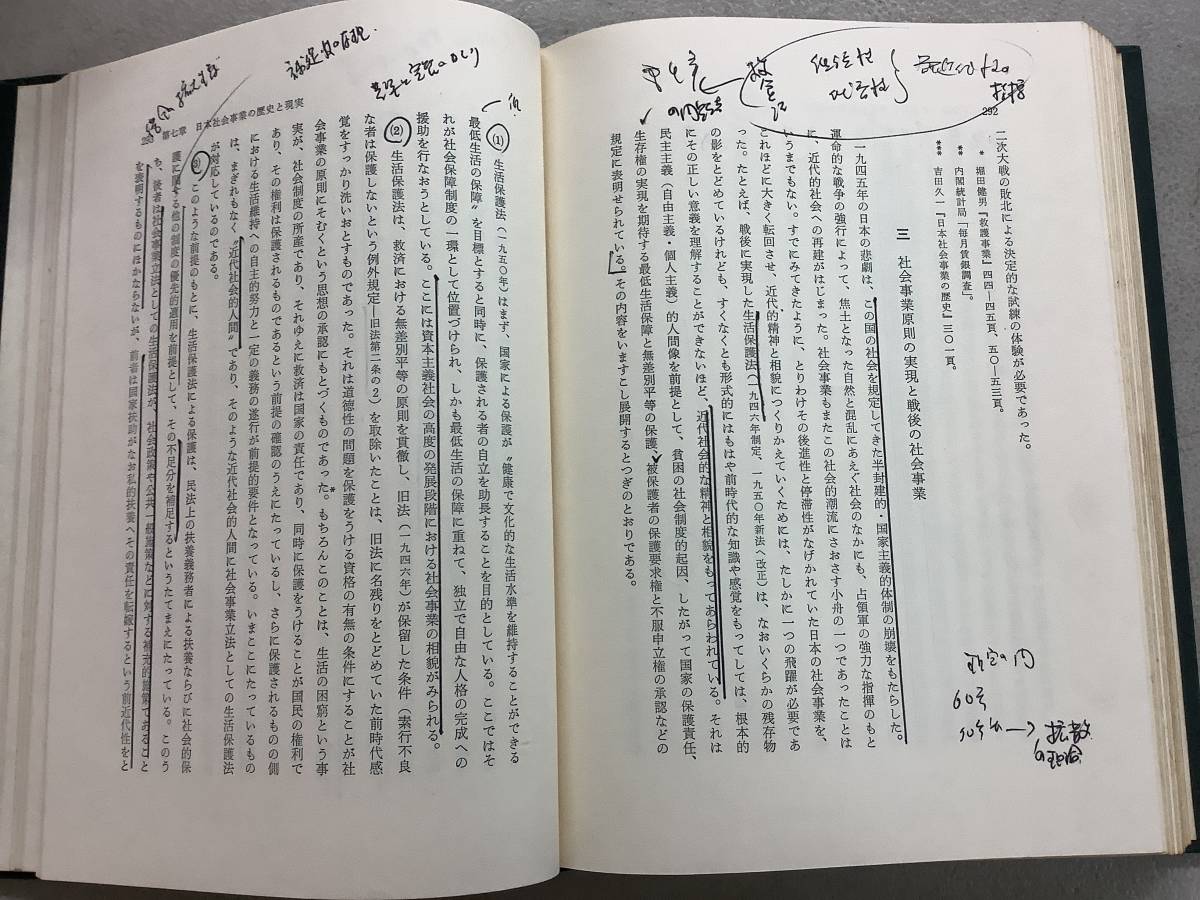 292
二次大戦の敗北による決定的な試練の体験が必要であった。
* 堀田健男『救護事業』四四―四五頁、五〇―五三頁。
** 内閣統計局「毎月賃銀調査」。
*** 吉田久一『日本社会事業の歴史』三〇一頁。
三 社会事業原則の実現と戦後の社会事業
一九四五年の日本の悲劇は、この国の社会を規定してきた半封建的・国家主義的体制の崩壊をもたらした。
運命的な戦争の強行によって、焦土となった自然と混乱にあえぐ社会のなかにも、占領軍の強力な指揮のもと
に、近代的社会への再建がはじまった。社会事業もまたこの社会的潮流にさおさす小舟の一つであったことは
いうまでもない。すでにみてきたように、とりわけその後進性と停滞性がなげかれていた日本の社会事業を、
これほどに大きく転回させ、近代的精神と相貌につくりかえていくためには、たしかに一つの飛躍が必要であ
った。たとえば、戦後に実現した生活保護法(一九四六年制定、一九五〇年新法へ改正)は、なおいくらかの残存物
の影をとどめているけれども、すくなくとも形式的にはもはや前時代的な知識や感覚をもってしては、根本的
にその正しい意義を理解することができないほど、近代社会的な精神と相貌をもってあらわれている。それは
民主主義(自由主義・個人主義)的人間像を前提として、貧困の社会制度的起因、したがって国家の保護責任、
生存権の実現を期待する最低生活保障と無差別平等の保護、被保護者の保護要求権と不服申立権の承認などの
規定に表明せられている。その内容をいますこし展開するとつぎのとおりである。
60年
拡散
293 第七章 日本社会事業の歴史と現実
(1) 生活保護法(一九五〇年)はまず、国家による保護が“健康で文化的な生活水準を維持することができる
最低生活の保障”を目標とすると同時に、保護される者の自立を助長することを目的としている。ここではそ
れが社会保障制度の一環として位置づけられ、しかも最低生活の保障に重ねて、独立で自由な人格の完成への
援助を行なおうとしている。ここには資本主義社会の高度の発展段階における社会事業の相貌がみられる。
(2) 生活保護法は、救済における無差別平等の原則を貫徹し、旧法(一九四六年)が保留した条件(素行不良
な者は保護しないという例外規定―旧法第二条の2)を取除いたことは、旧法に名残りをとどめていた前時代感
覚をすっかり洗いおとすものであった。それは道徳性の問題を保護をうける資格の有無の条件にすることが社
会事業の原則にそむくという思想の承認にもとづくものであった。*もちろんこのことは、生活の困窮という事
実が、社会制度の所産であり、それゆえに救済は国家の責任であり、同時に保護をうけることが国民の権利で
あり、その権利は保護されるものであるという前提の確認のうえにたっているし、さらに保護されるものの側
における生活維持への自主的努力と一定の義務の遂行が前提的要件となっている。いまここにたっているもの
は、まぎれもなく“近代社会的人間”であり、そのような近代社会的人間に社会事業立法としての生活保護法
が対応しているのである。
(3) このような前提のもとに、生活保護法による保護は、民法上の扶養義務者による扶養ならびに社会的保
護に関する他の制度の優先的適用を前提として、その不足分を補足するというたてまえにたっている。このう
ち、後者は社会事業立法としての生活保護法が、社会政策や公共一般施策などに対する補充的施策であること
を表明するものにほかならないが、前者は国家扶助がなお私的扶養へその責任を転嫁するという前近代性をと